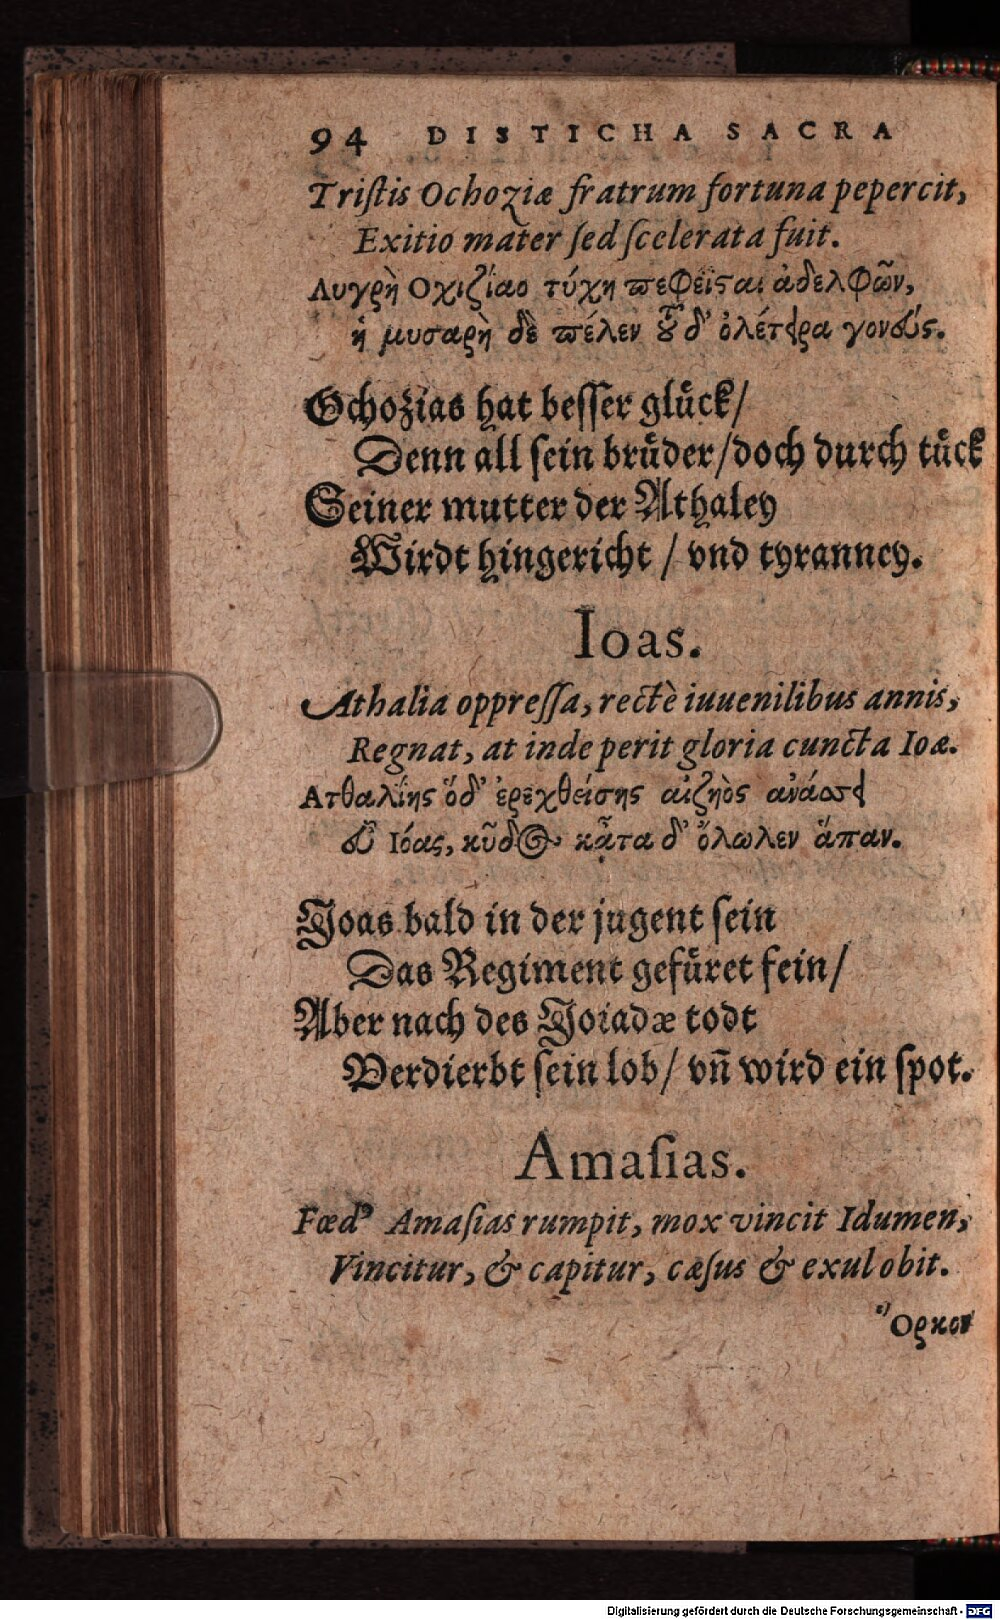 94 DISTICHA SACRA
Triſtis Ochoziæ fratrum fortuna pepercit,
Exitio mater ſed ſcelerata fuit.
Λυγρὴ Οχιζίαο τύχη πεφεῖϛαι ἀδελφῶν,
ἡ μυσαρὴ δὲ πέλεν δ' ὀλέτειρα γονοὺς.
Ochozias hat beſſer glůck/
Denn all ſein brůder/doch durch tůck
Seiner mutter der Athaley
Wirdt hingericht / vnd tyranney.
Ioas.
Athalia oppreſſa, rectè iuuenilibus annis,
Regnat, at inde perit gloria cuncta Ioæ.
Ατθαλίης ὅδ' ἐρεχθείσης αἰζηὸς ἀνάσσει
εὖ Ιόας, κῦδος κᾆτα δ' ὄλωλεν ἅπαν.
Joas bald in der jugent ſein
Das Regiment gefůret fein/
Aber nach des Joiadæ todt
Verdierbt ſein lob/ vñ wird ein ſpot.
Amaſias.
Fœdꝰ Amaſias rumpit, mox vincit Idumen,
Vincitur, & capitur, cæſus & exul obit.
Ὅρκον
Digitalisierung gefördert durch die Deutsche Forschungsgemeinschaft - DFG